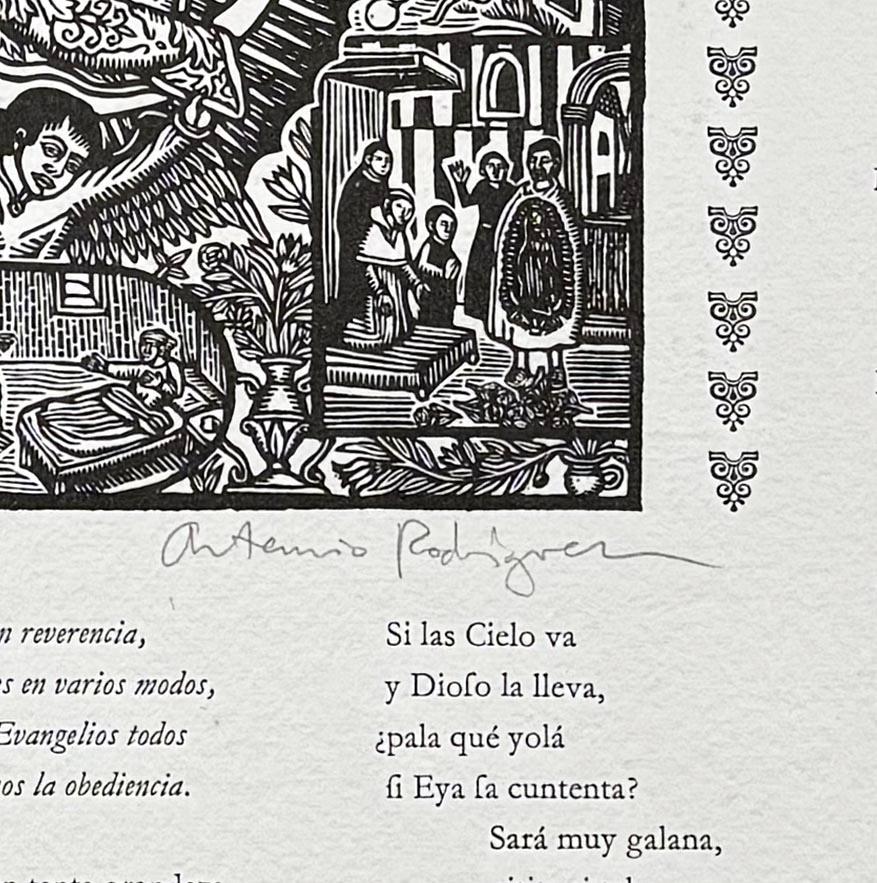 Artemio Rodríguez
n reverencia,
s en varios modos,
Evangelios todos
os la obediencia.
Si las Cielo va
y Dioſo la lleva,
¿pala qué yolá
ſi Eya ſa cuntenta?
Sará muy galana,